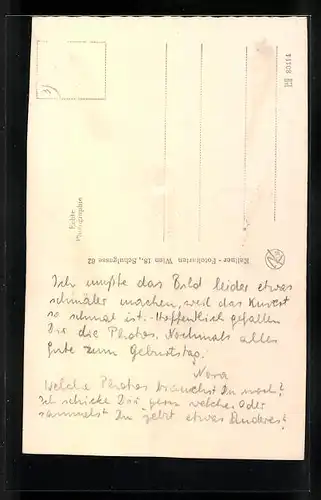 3)
Echte
Photographie
Kellner - Fotokarten Wien 18., Schulgasse 62
80414
Ich mußte das Bild leider etwas
schmäler machen, weil das Kuvert
so schmal ist. Hoffentlich gefallen
Dir die Photos. Nochmals alles
Gute zum Geburtstag.
Nora
Welche Photos brauchst Du noch?
Ich schicke Dir gern welche. Oder
sammelst Du jetzt etwas Anderes?